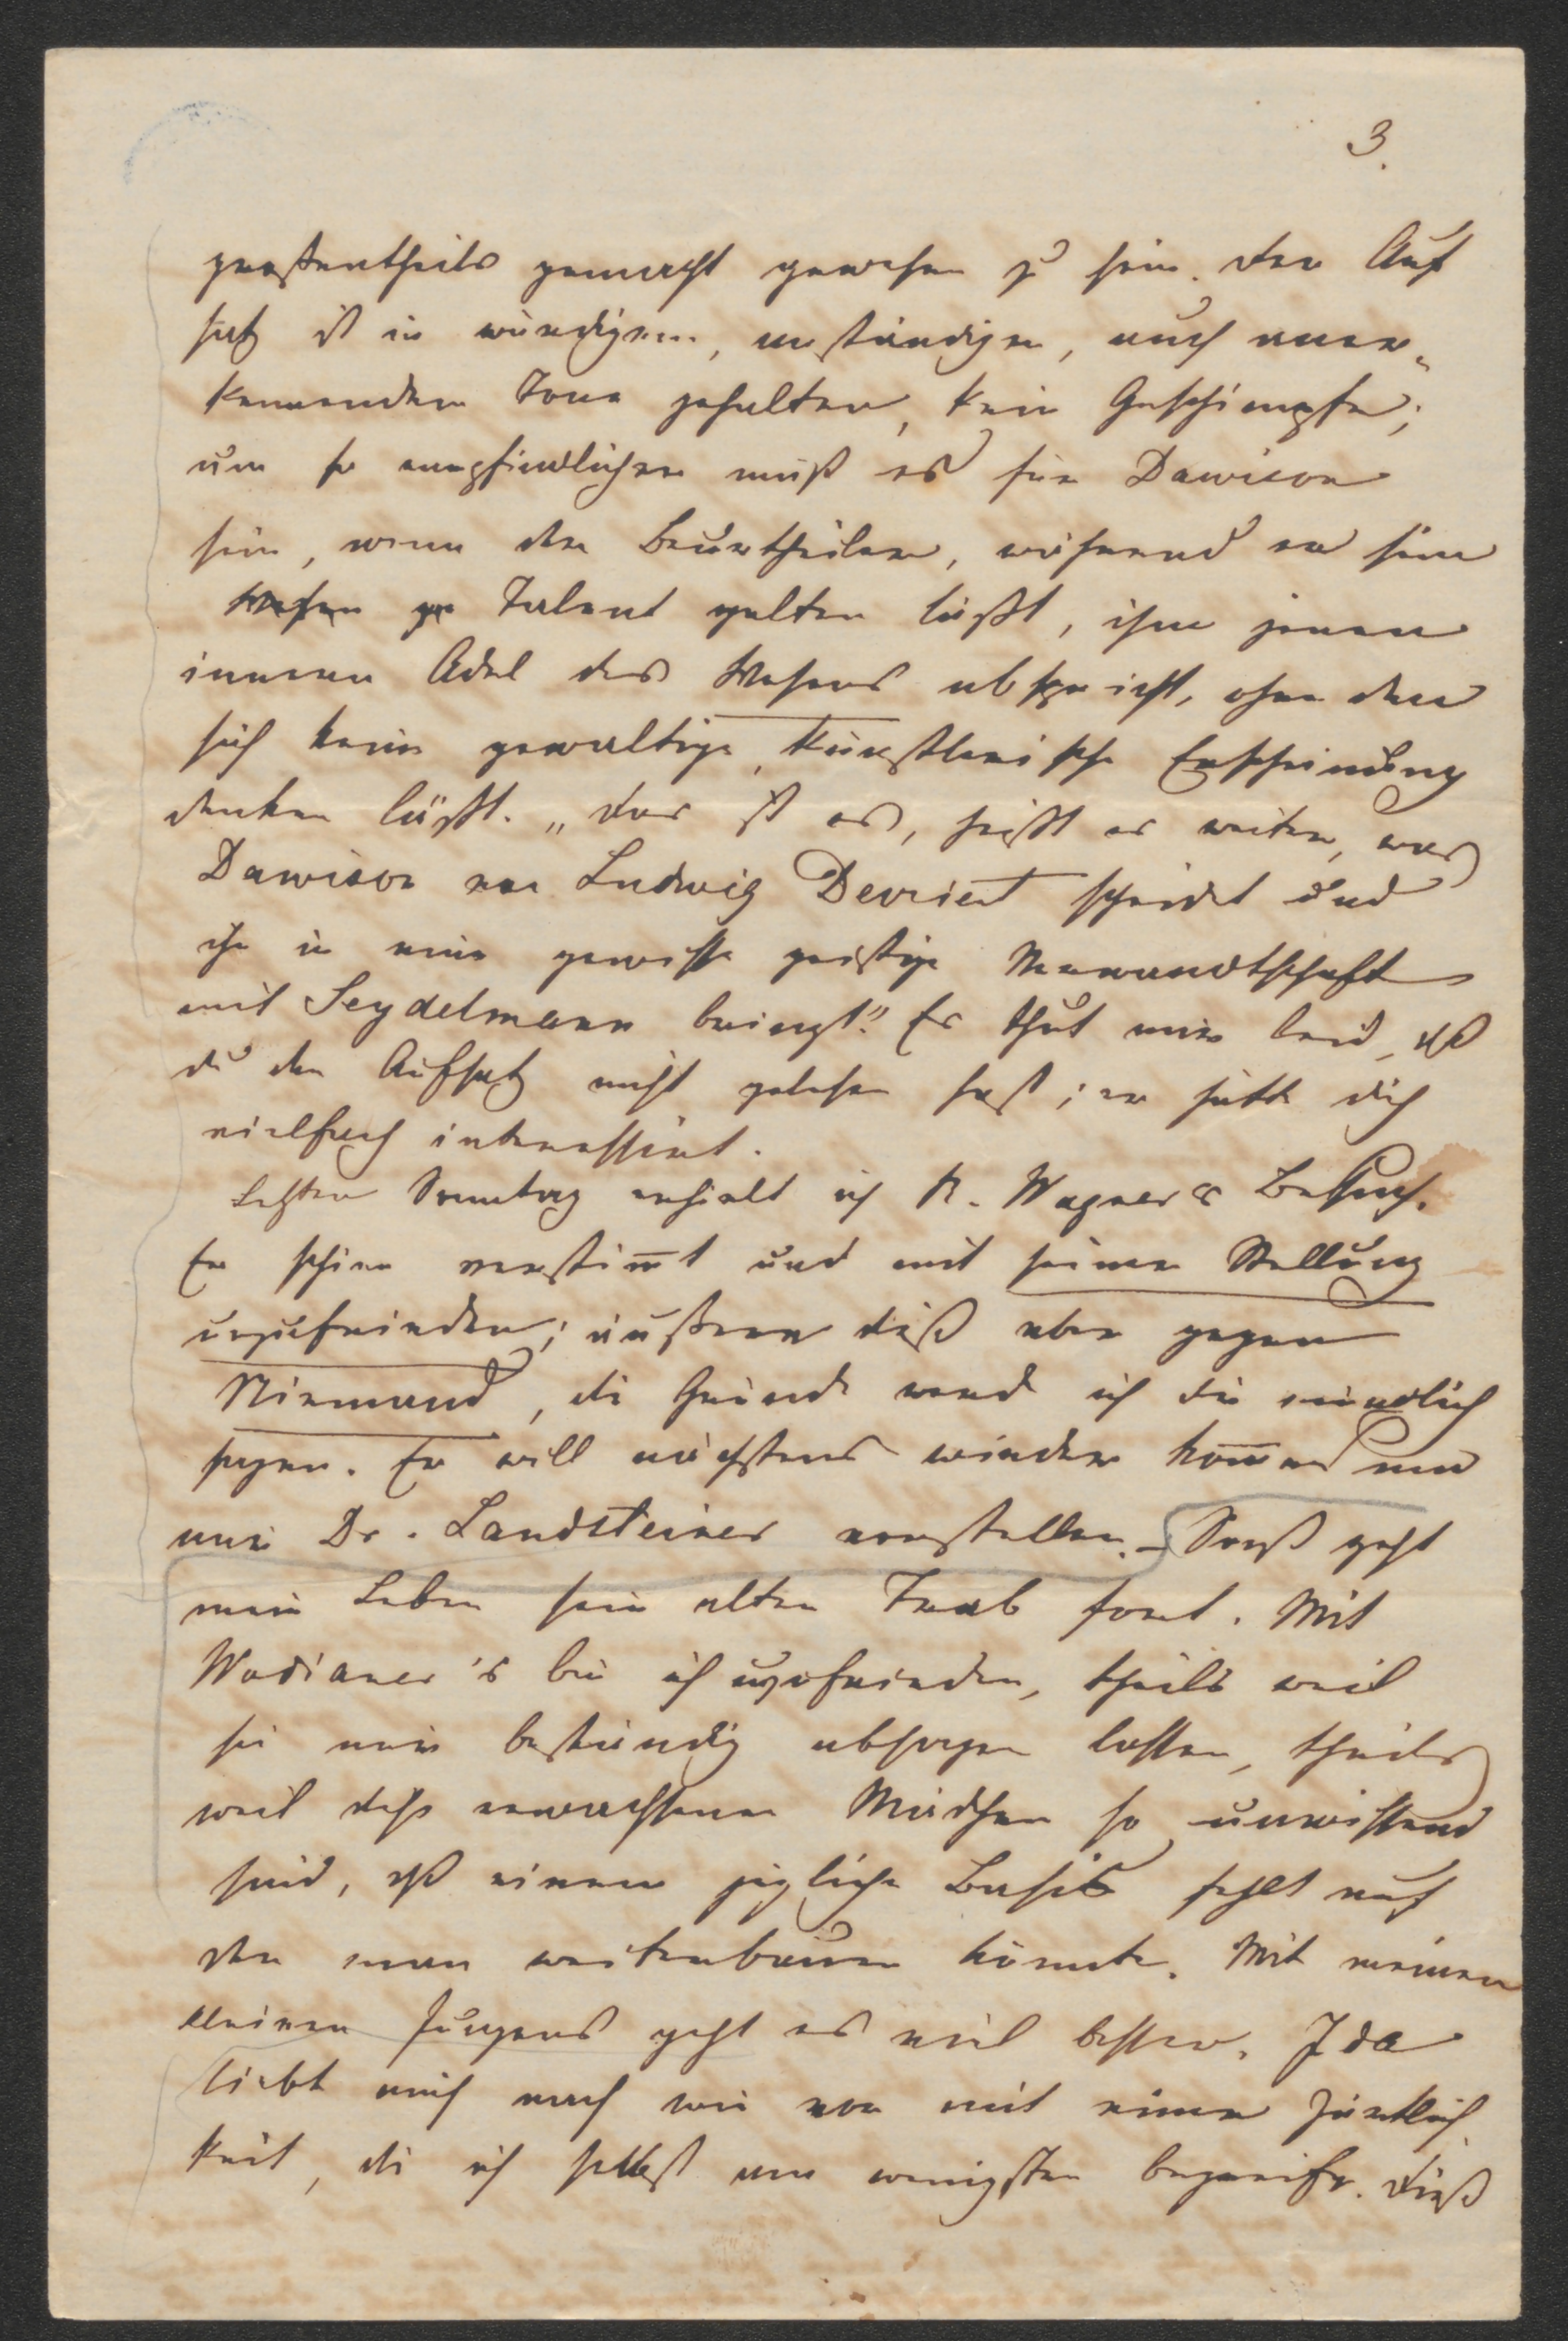 3.
großentheils gemacht gewesen zu sein. Der Auf
satz ist in würdigem, anständigen, auch aner-
kennenden Tone gehalten, kein Geschimpfe;
um so empfindlicher muß es für Dawison
sein, wenn der Beurtheiler, während er sein
Wesen ge Talent gelten läßt, ihm jenen
inneren Adel des Wesens abspricht, ohne den
sich keine gewaltige, künstlerische Erscheinung
denken läßt. „Das ist es, heißt es weiter, was
Dawison von Ludwig Devrient scheidet und
ihn in eine gewisse geistige Verwandtschaft
mit Seydelmann bringt." Es thut mir leid, dß
du den Aufsatz nicht gelesen hast; er hätte dich
vielfach interessirt.
Letzten Sonntag erhielt ich R. Wagners Besuch.
Er schien verstimt und mit seiner Stellung
unzufrieden; äußere dieß aber gegen
Niemand, die Gründe werde ich dir mündlich
sagen. Er will nächstens wieder komen und
mir Dr. Landsteiner vorstellen. – Sonst geht
mein Leben sein alten Trab fort. Mit
Wodianer's bin ich unzufrieden, theils weil
sie mir beständig absagen lassen, theils
weil diese erwachsenen Mädchen so unwissend
sind, dß einem jegliche Basis fehlt auf
der man weiterbauen könnte. Mit meinen
kleinen Jungens geht es viel besser. Ida
liebt mich nach wie vor mit einer Zärtlich
keit, die ich selbst am wenigsten begreife. Dieß